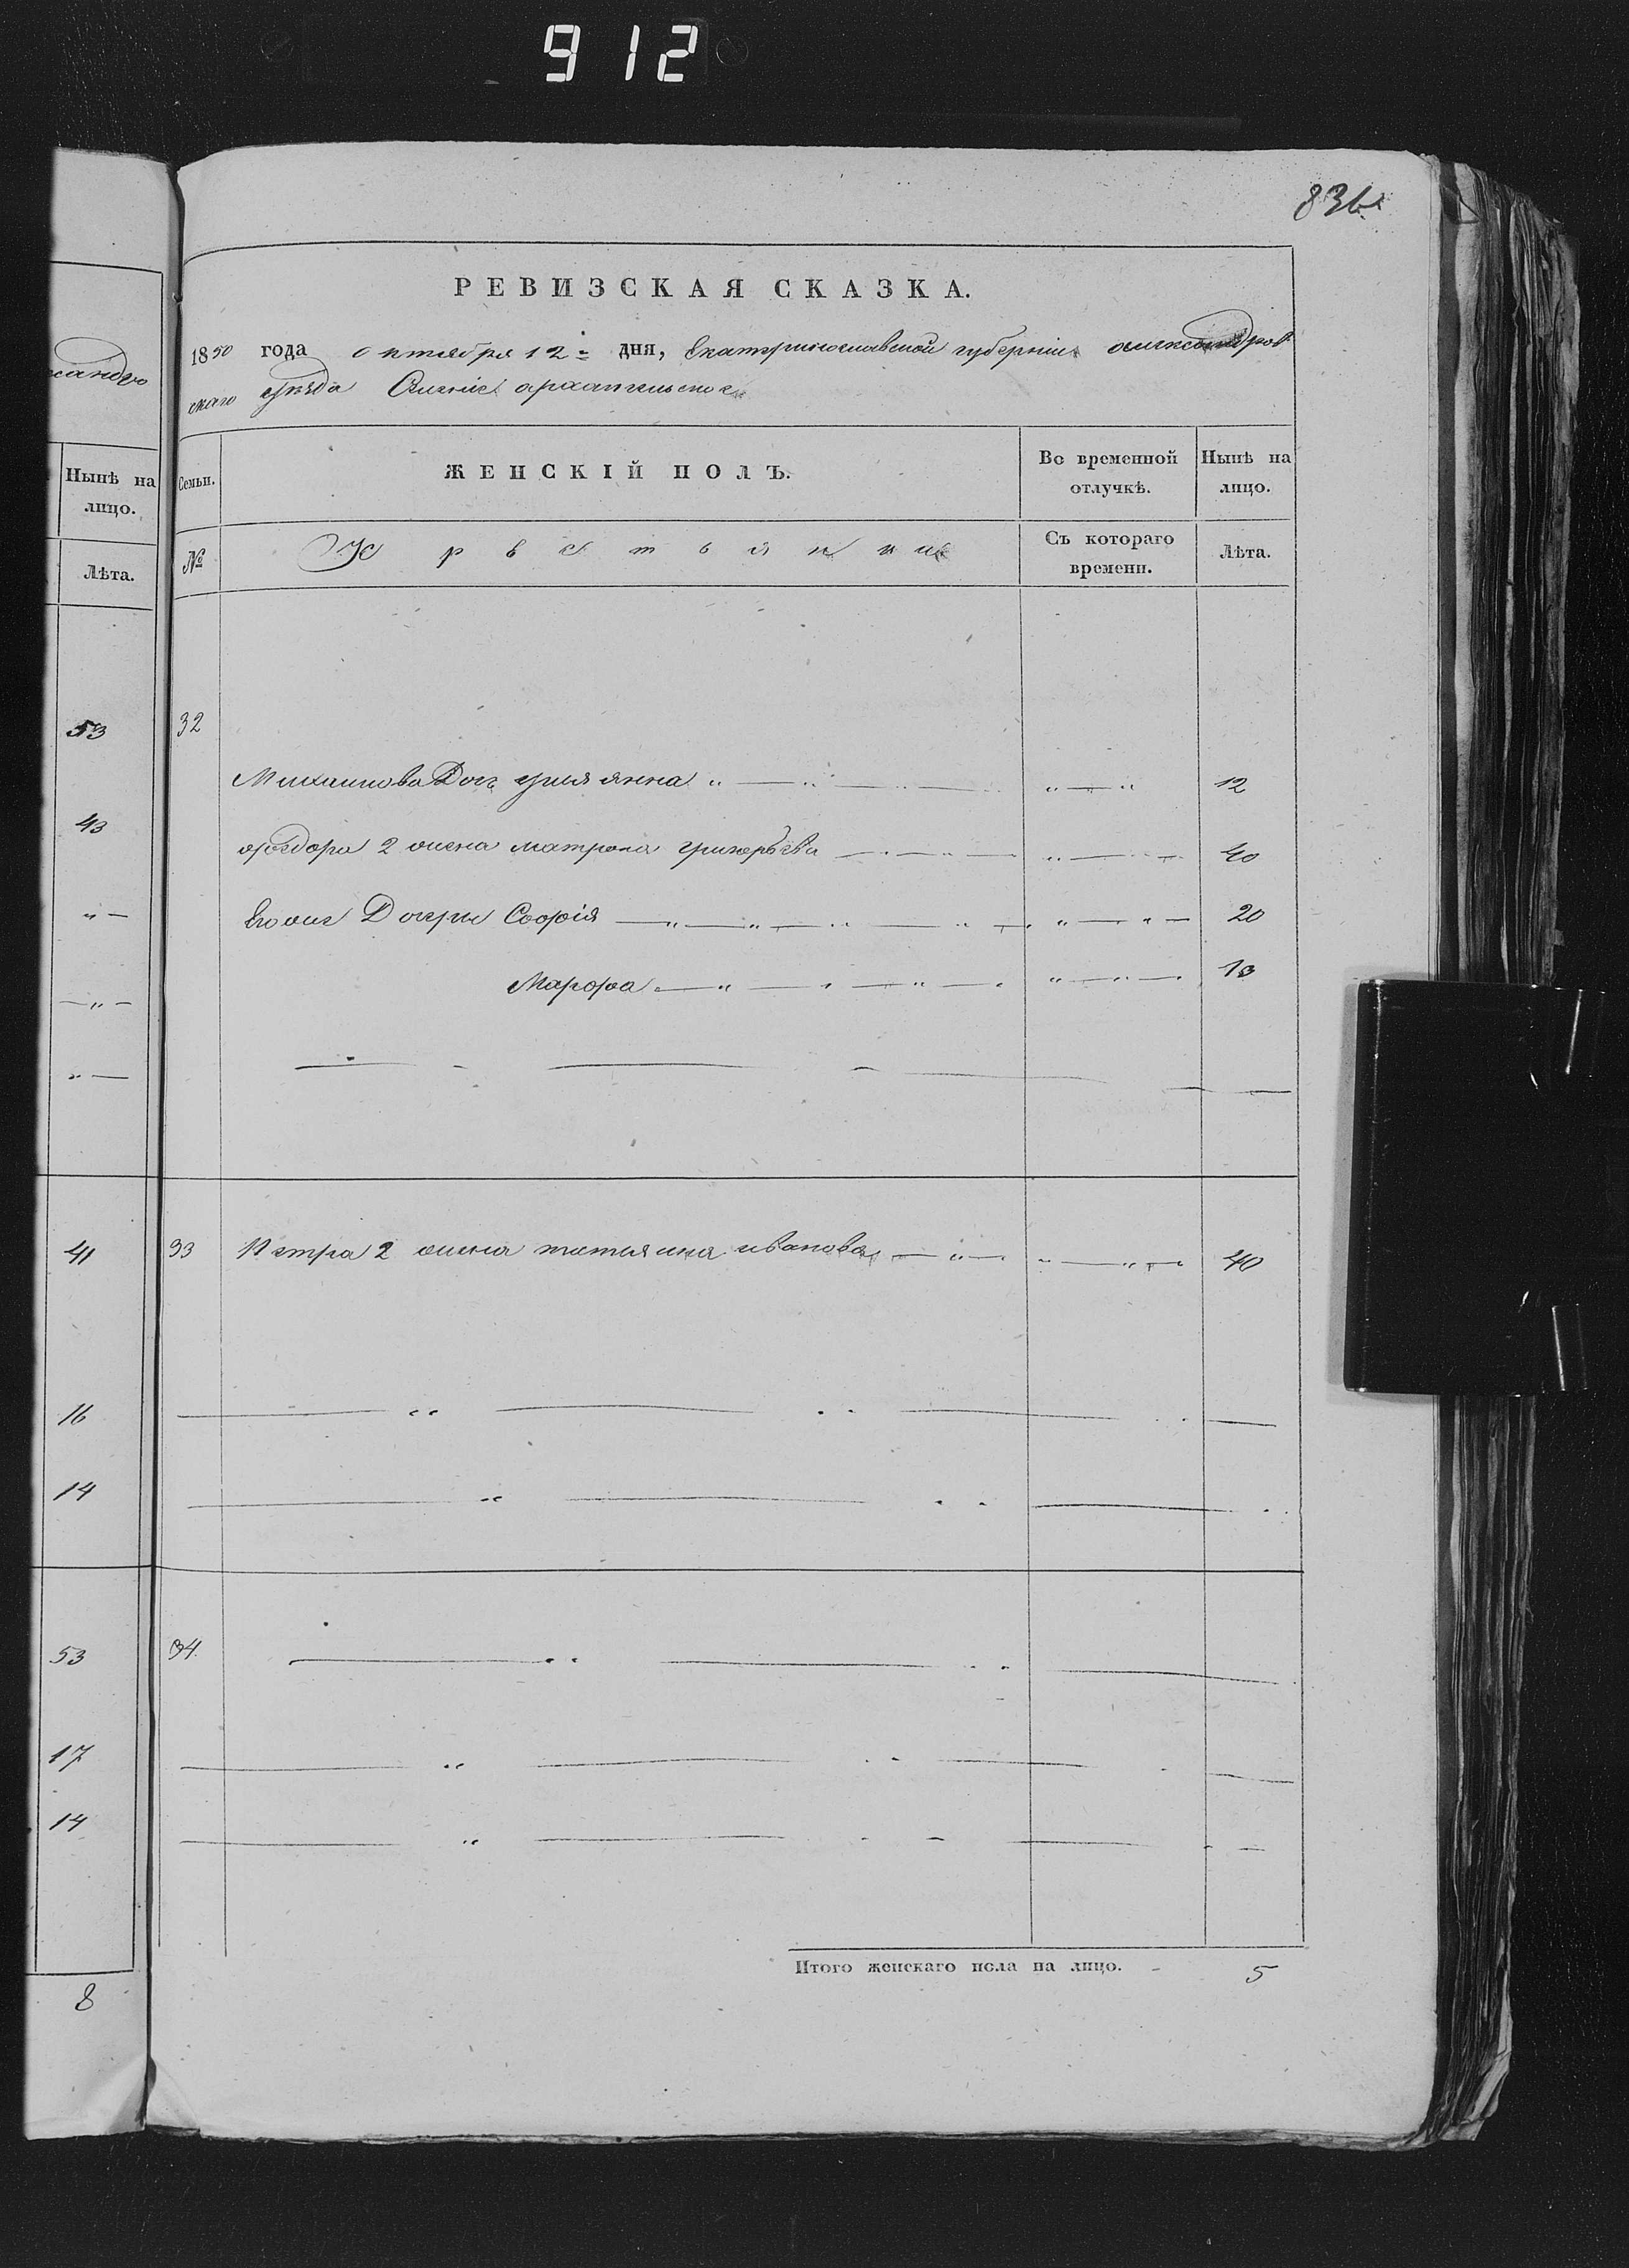 912
836
РЕВИЗСКАЯ СКАЗКА.
1850 года октября 12 дня, Екатеринославской губернии александров
скаго уезда Селение архангельское
сандро
Нынѣ на лицо.
Лѣта.
Семьи.
ЖЕНСКІЙ ПОЛЪ.
Во временной отлучкѣ.
Нынѣ на лицо.
№
Крестьянки
Съ котораго времени.
Лѣта.
53 32
Михаилова Дочь улиянна 12
43
федора 2 жена матрона григорьева 40
Его же Дочери Софія 20
Марфа 13
41 33 Петра 2 жена татьяна иванова 40
16
14
53 34.
17
14
8
Итого женскаго пола на лицо. 5